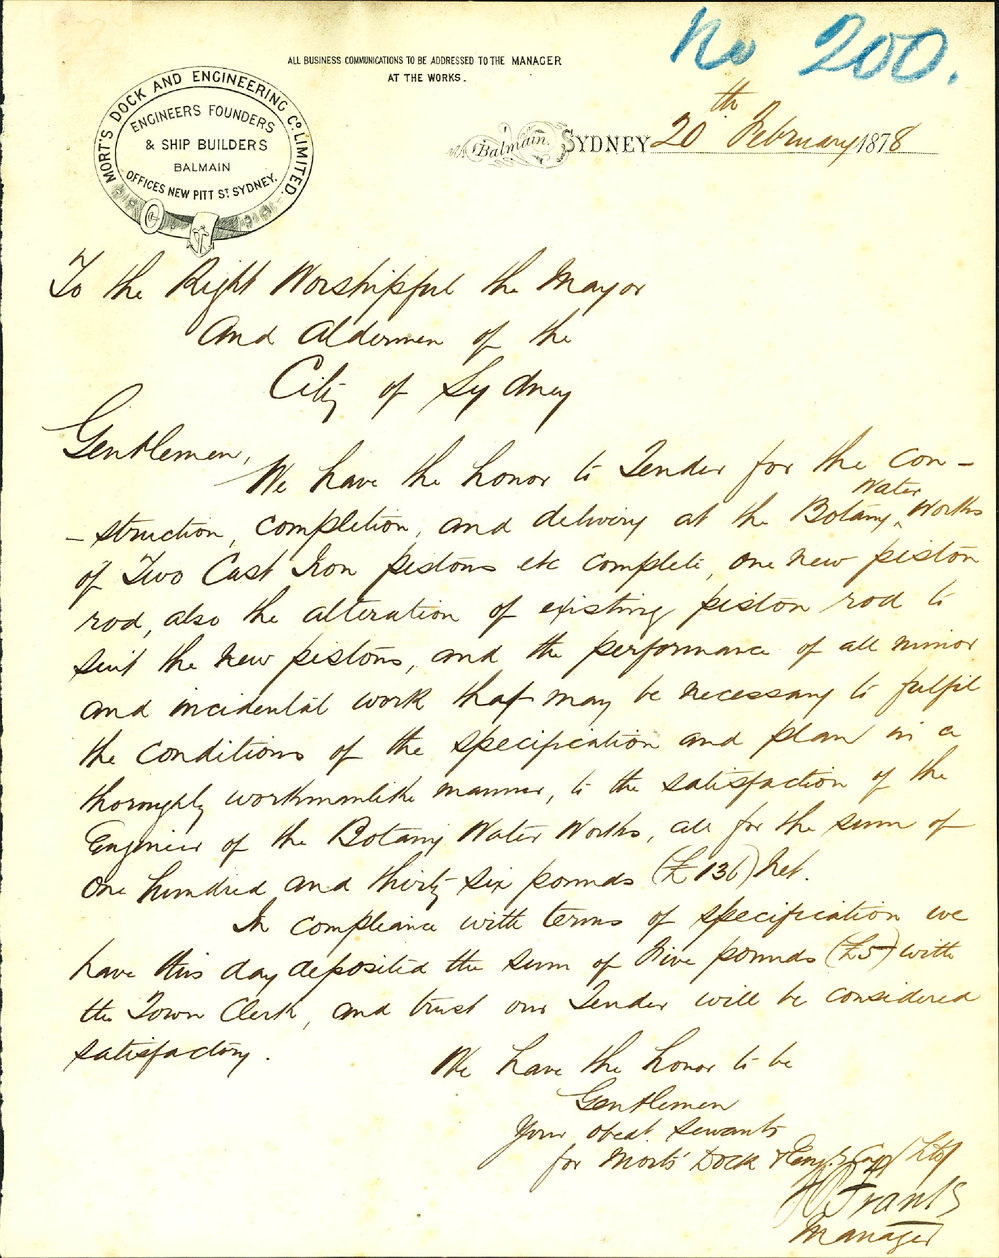 No 200.
ALL BUSINESS COMMUNICATIONS TO BE ADDRESSED TO THE MANAGER
AT THE WORKS.
MORT'S DOCK AND ENGINEERING Co. LIMITED
ENGINEERS FOUNDERS
& SHIP BUILDERS
BALMAIN
OFFICES NEW PITT ST. SYDNEY.
Balmain. SYDNEY 20th February 1878
To the Right Worshipful the Mayor
And Aldermen of the
City of Sydney
Gentlemen,
We have the honor to Tender for the Con-
-struction, completion, and delivery at the Botany Water Works
of Two Cast Iron pistons etc complete, one new piston
rod, also the alteration of existing piston rod to
suit the new pistons, and the performance of all minor
and incidental work that may be necessary to fulfil
the conditions of the specification and plan in a
thoroughly workmanlike manner, to the satisfaction of the
Engineer of the Botany Water Works, all for the sum of
One hundred and thirty six pounds (£136) Net.
In compliance with terms of specification we
have this day deposited the sum of Five pounds (£5) with
the Town Clerk, and trust our Tender will be considered
satisfactory.
We have the honor to be
Gentlemen
Your obedt. servants
for Morts' Dock & Eng. Coy Ltd
Franks
Manager